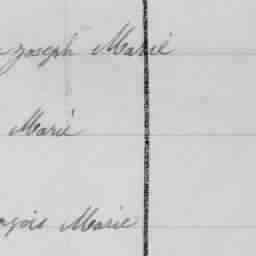 Joseph Marié
Marié
nçois Marie